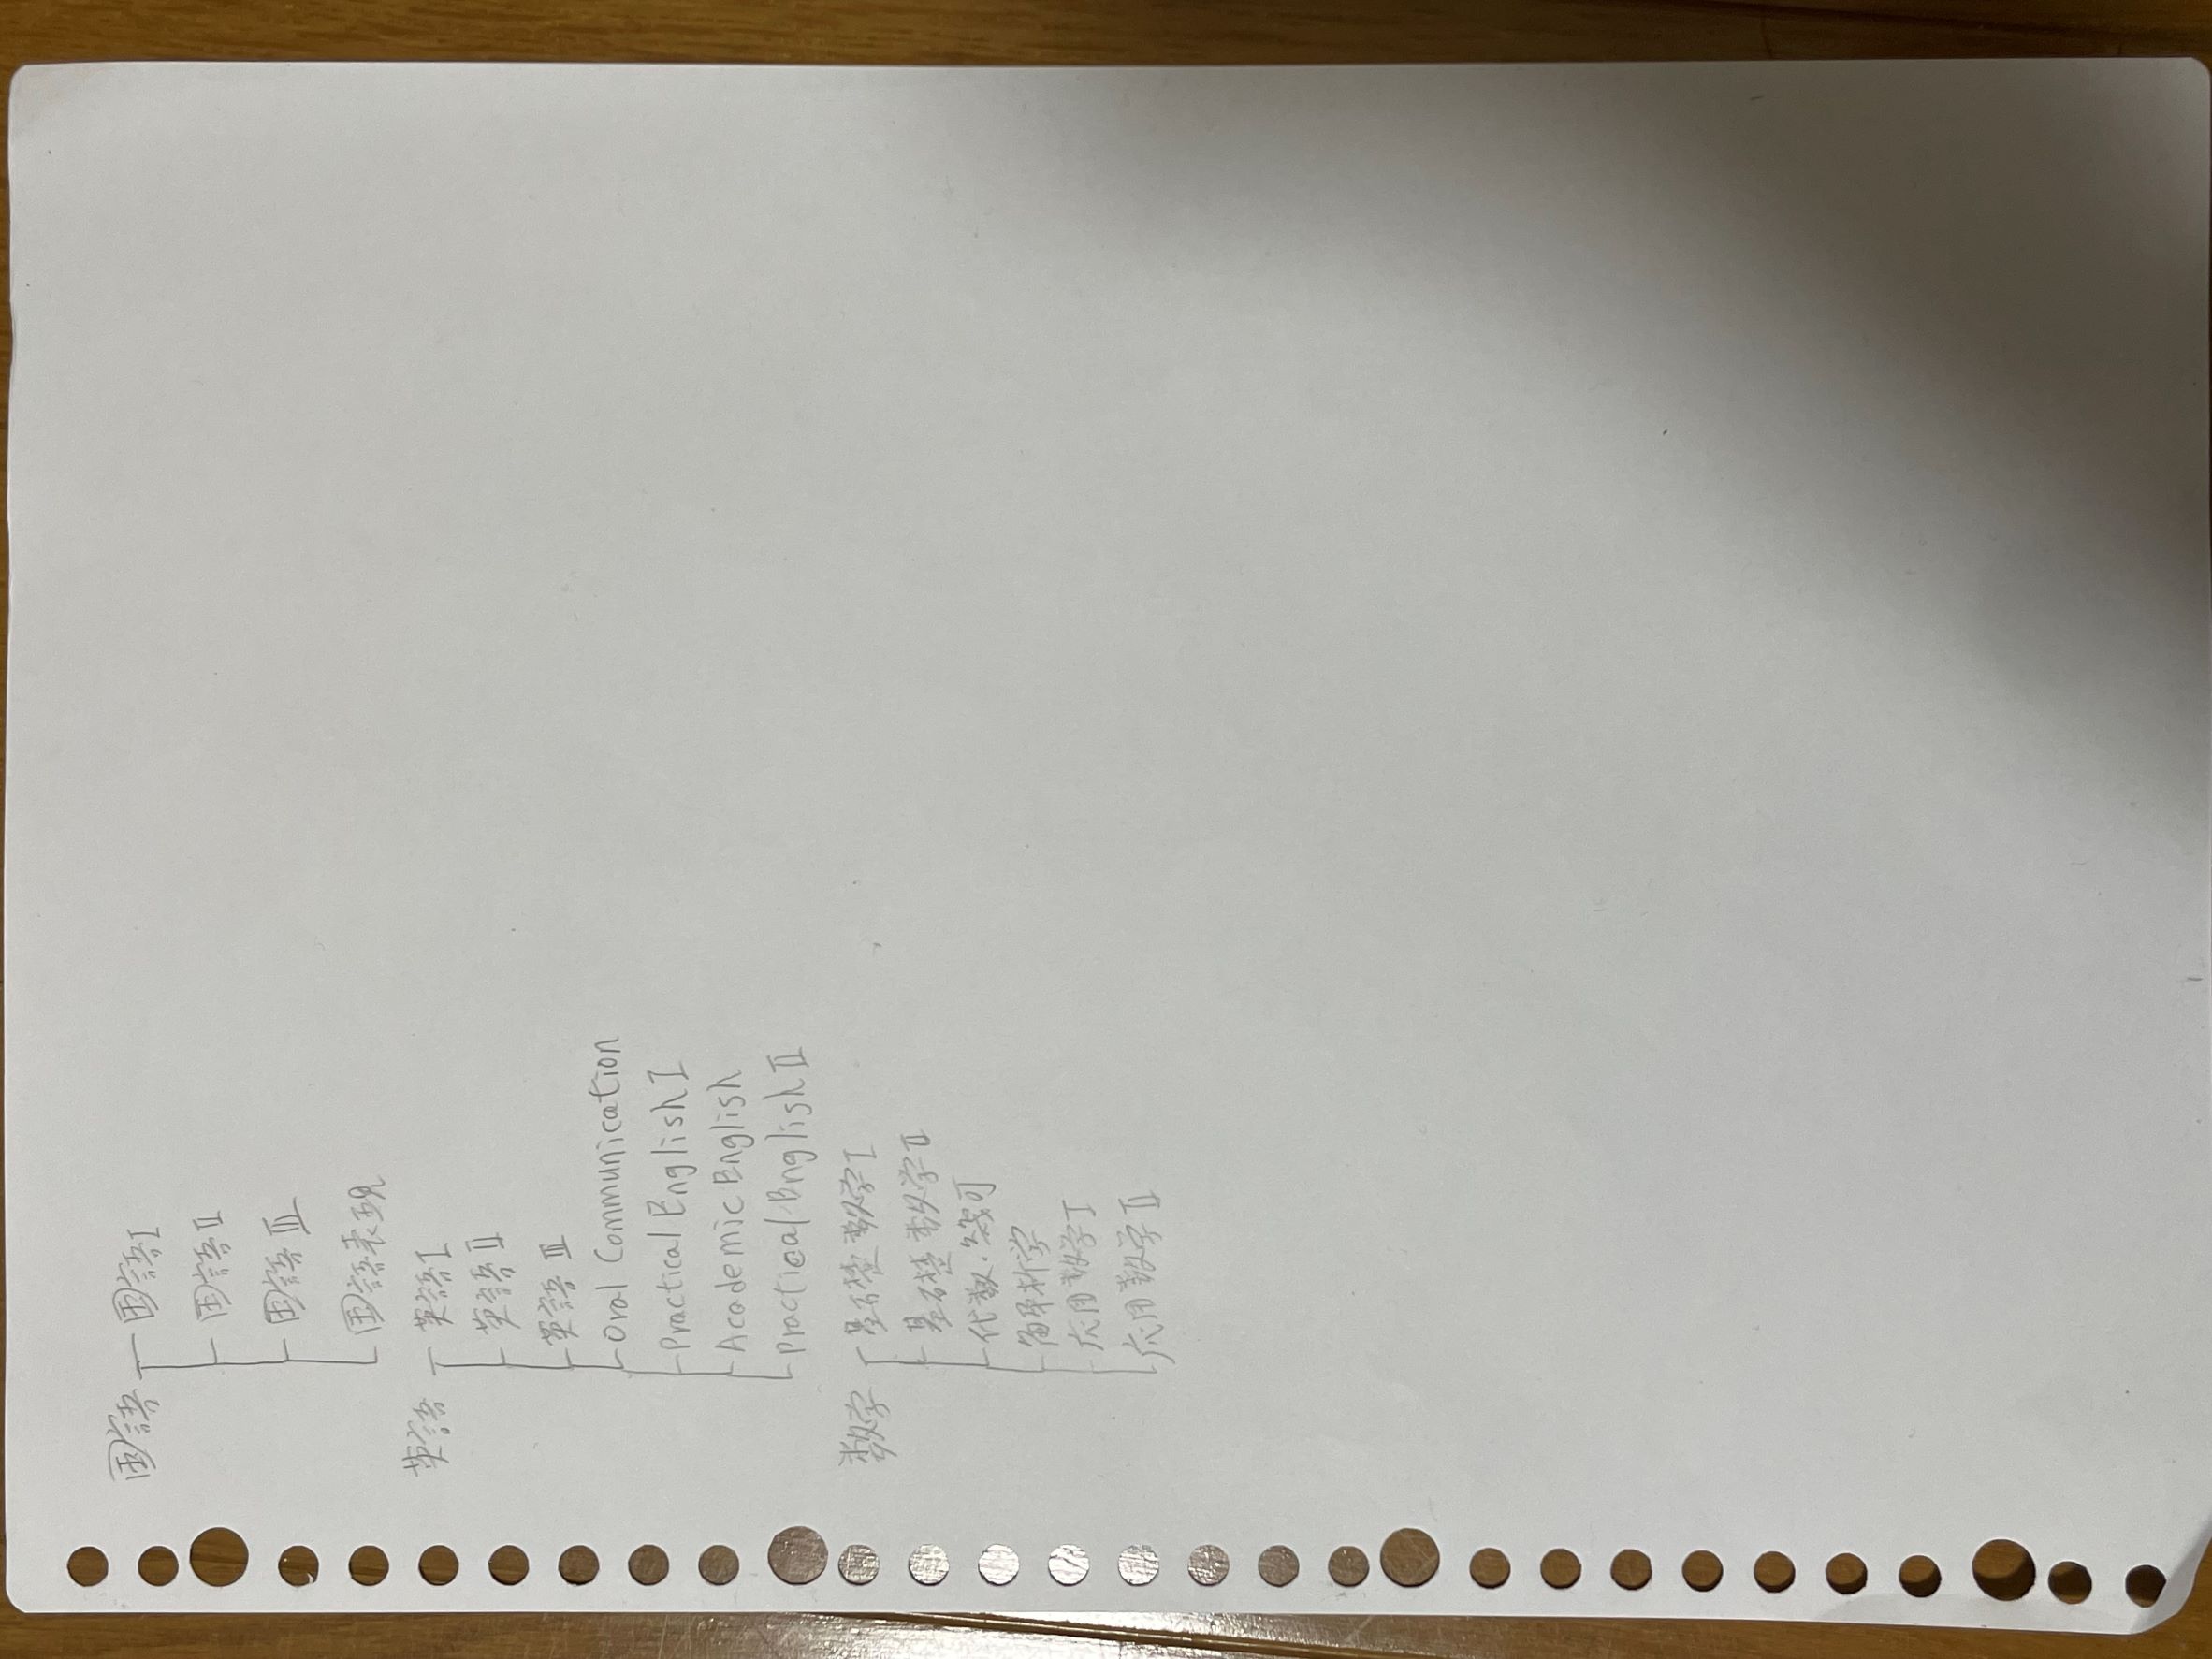 国語 国語I
国語II
国語III
国語表現
英語 英語I
英語II
英語III
Oral Communication
Practical English I
Academic English
Practical English II
数学 基礎数学I
基礎数学II
代数・幾何
解析学
応用数学I
応用数学II